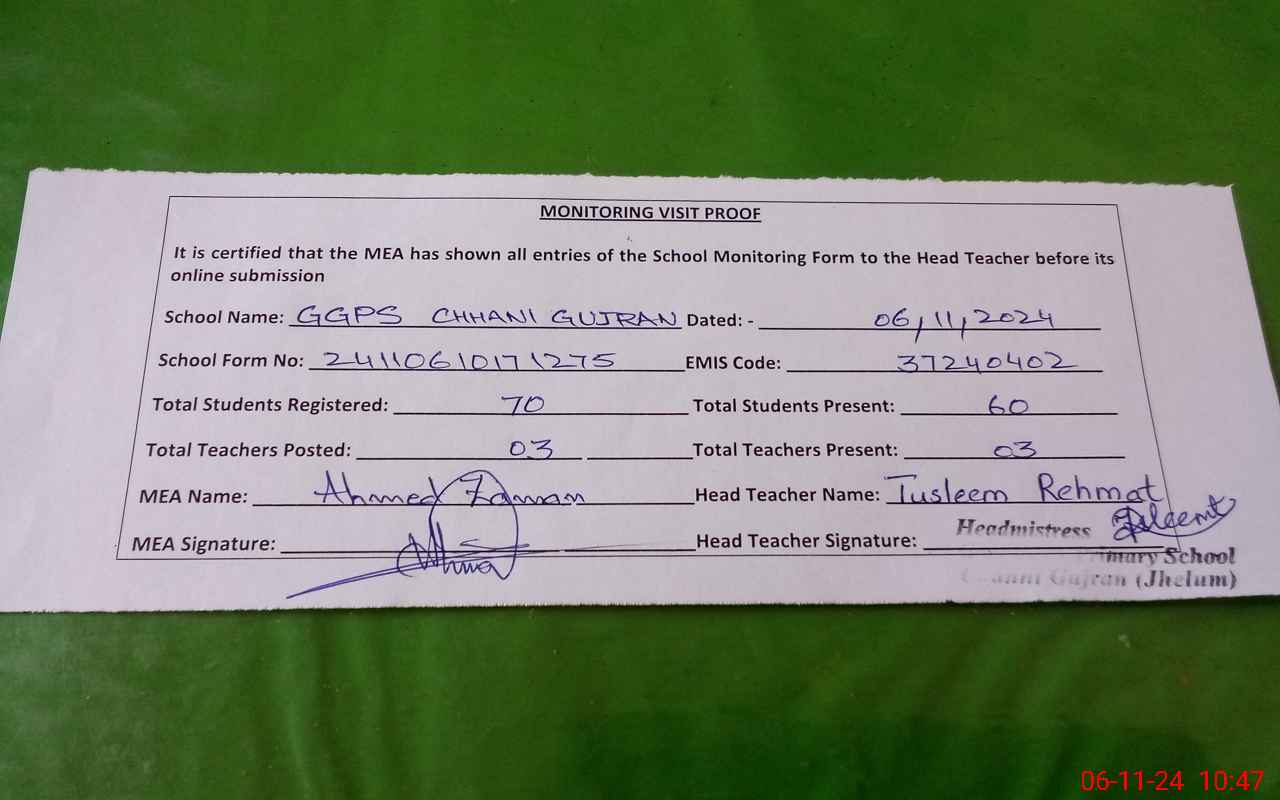 MONITORING VISIT PROOF
It is certified that the MEA has shown all entries of the School Monitoring Form to the Head Teacher before its
online submission
School Name: GGPS CHHANI GUJRAN Dated: - 06,11,2024
School Form No: 24110610171275 EMIS Code: 37240402
Total Students Registered: 70 Total Students Present: 60
Total Teachers Posted: 03 Total Teachers Present: 03
MEA Name: Ahmed Zaman Head Teacher Name: Tusleem Rehmat
MEA Signature: Head Teacher Signature:
Headmistress
School
Gujran (Jhelum)
06-11-24 10:47